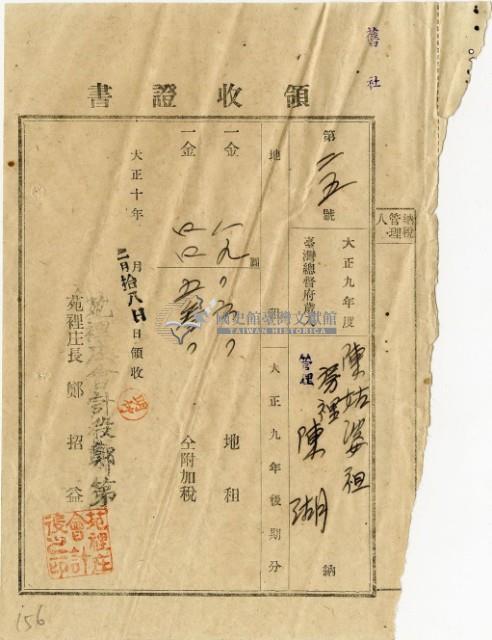 舊社
領收證書
納稅管理人
第 二五 號
大正九年度
臺灣總督府歲入
陳姑婆祖
管理
管理 陳湖 納
地租
大正九年後期分
一金
圓
地租
一金
仝附加稅
大正十年
二月拾八日
月 日領收
苑裡庄會計役鄭第
苑裡庄長 鄭招益
苑裡庄會計役之印
國史館臺灣文獻館
TAIWAN HISTORICA
156